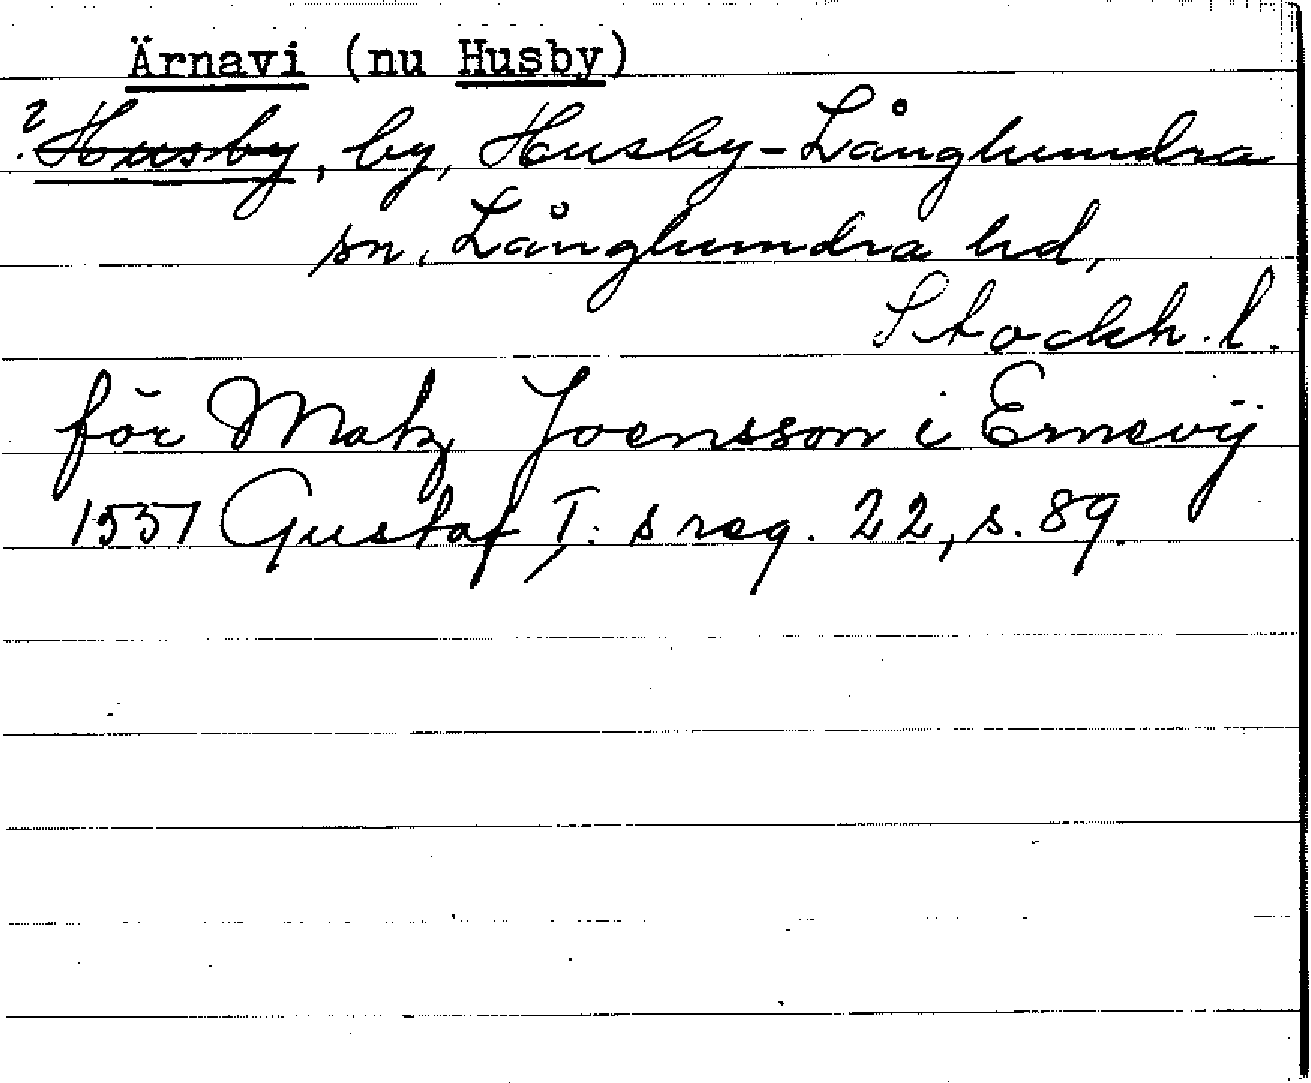 Ärnavi (nu Husby)
? Husby, by, Husby-Långhundra
sn, Långhundra hd,
Stockh. l.
för Matz Joensson i Ernevij
1551 Gustaf I: s reg. 22, s. 89